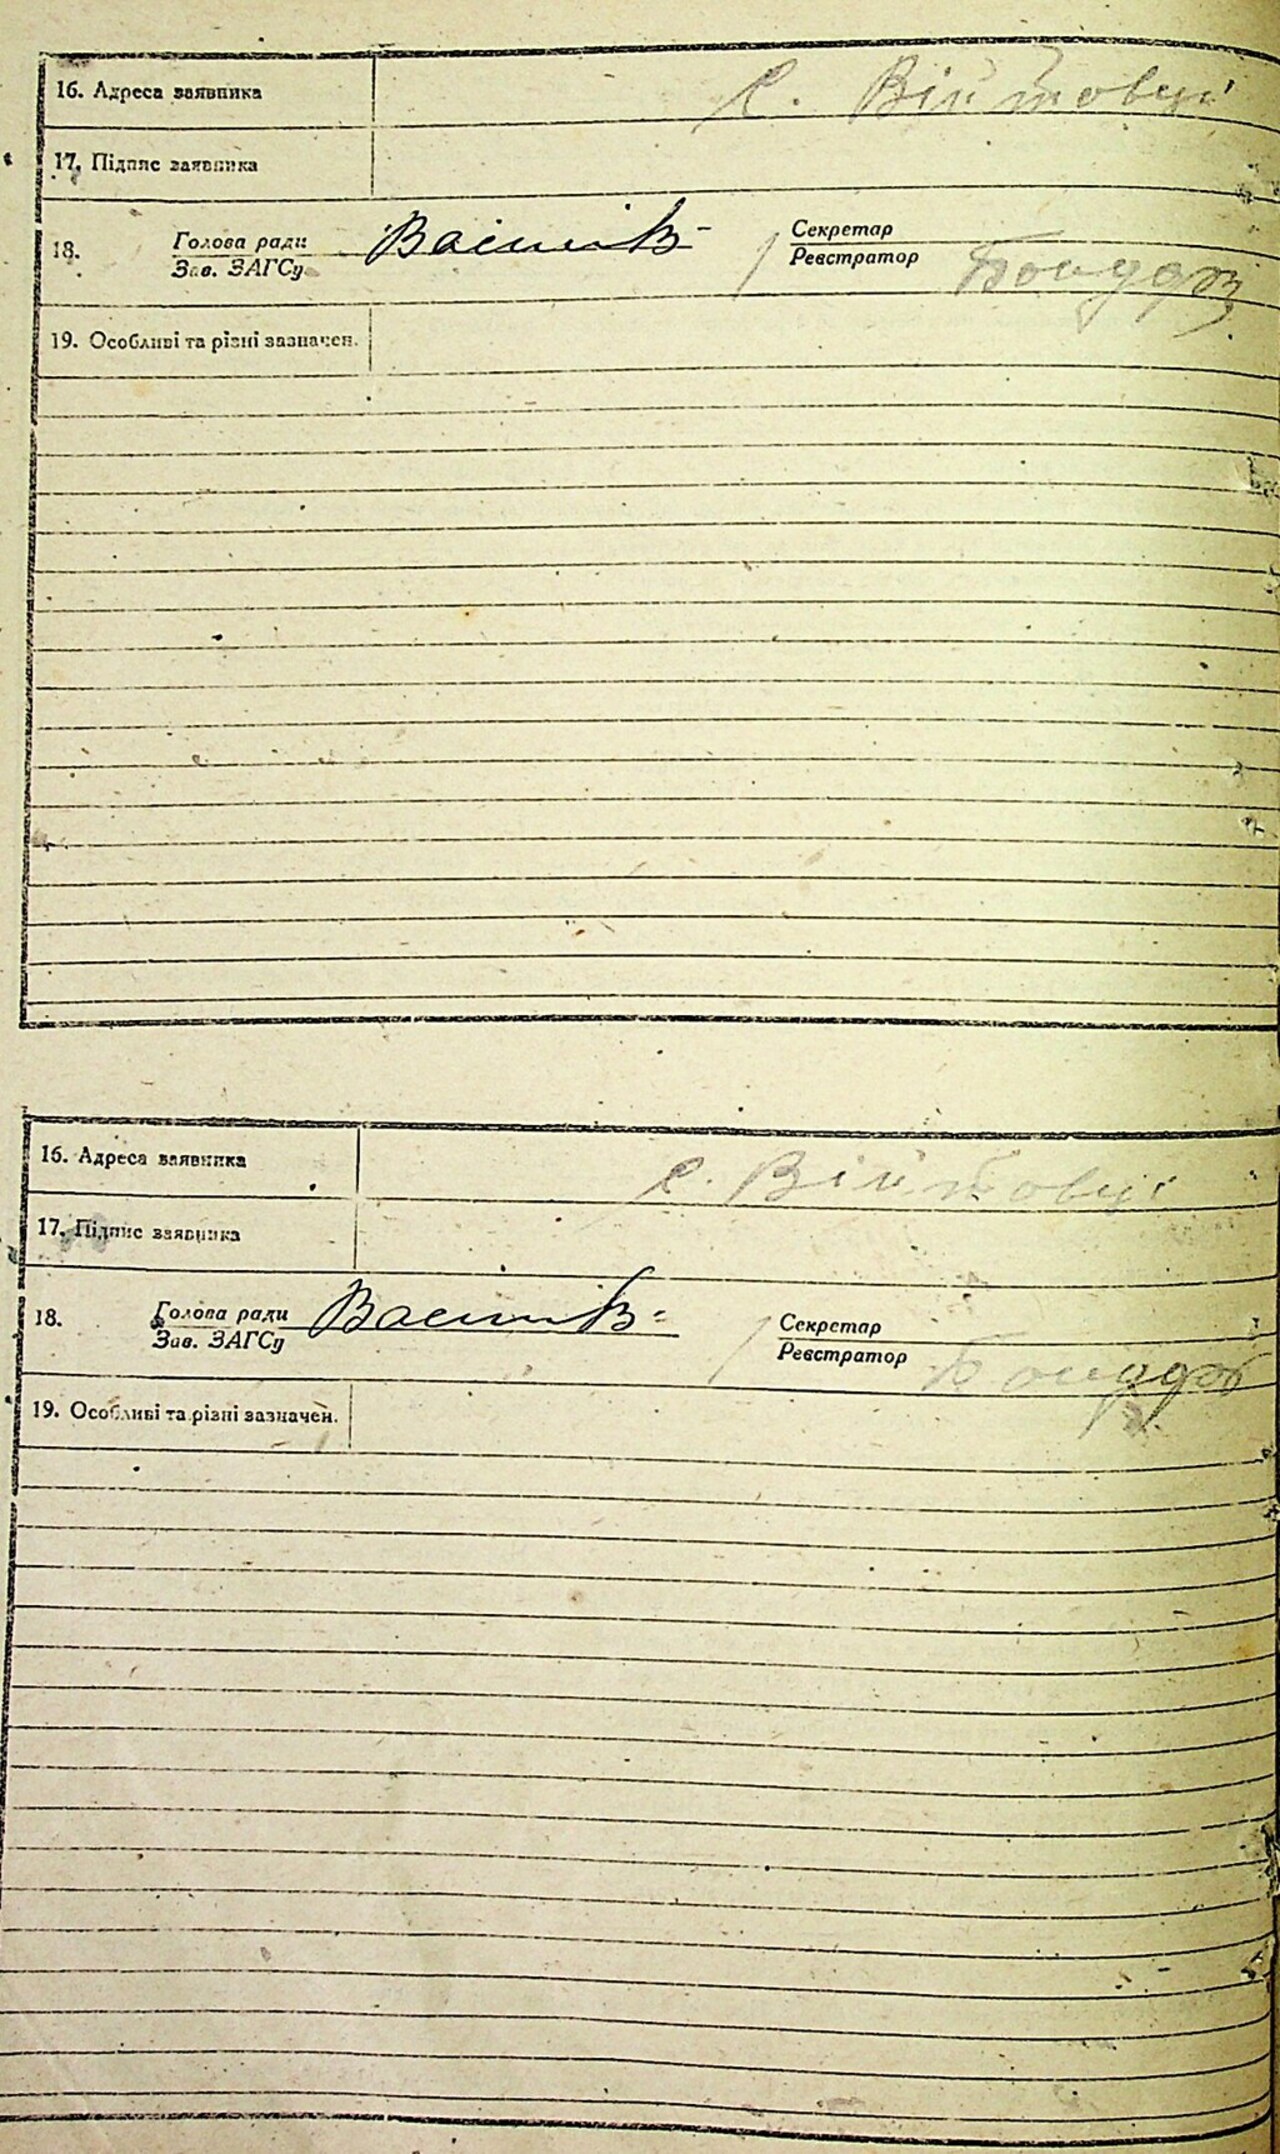 16. Адреса заявника с. Війтовці
17. Підпис заявника
18. Голова ради Секретар
Зав. ЗАГСу Реєстратор
19. Особливі та різні зазначен.
16. Адреса заявника с. Війтовці
17. Підпис заявника
18. Голова ради Секретар
Зав. ЗАГСу Реєстратор
19. Особливі та різні зазначен.